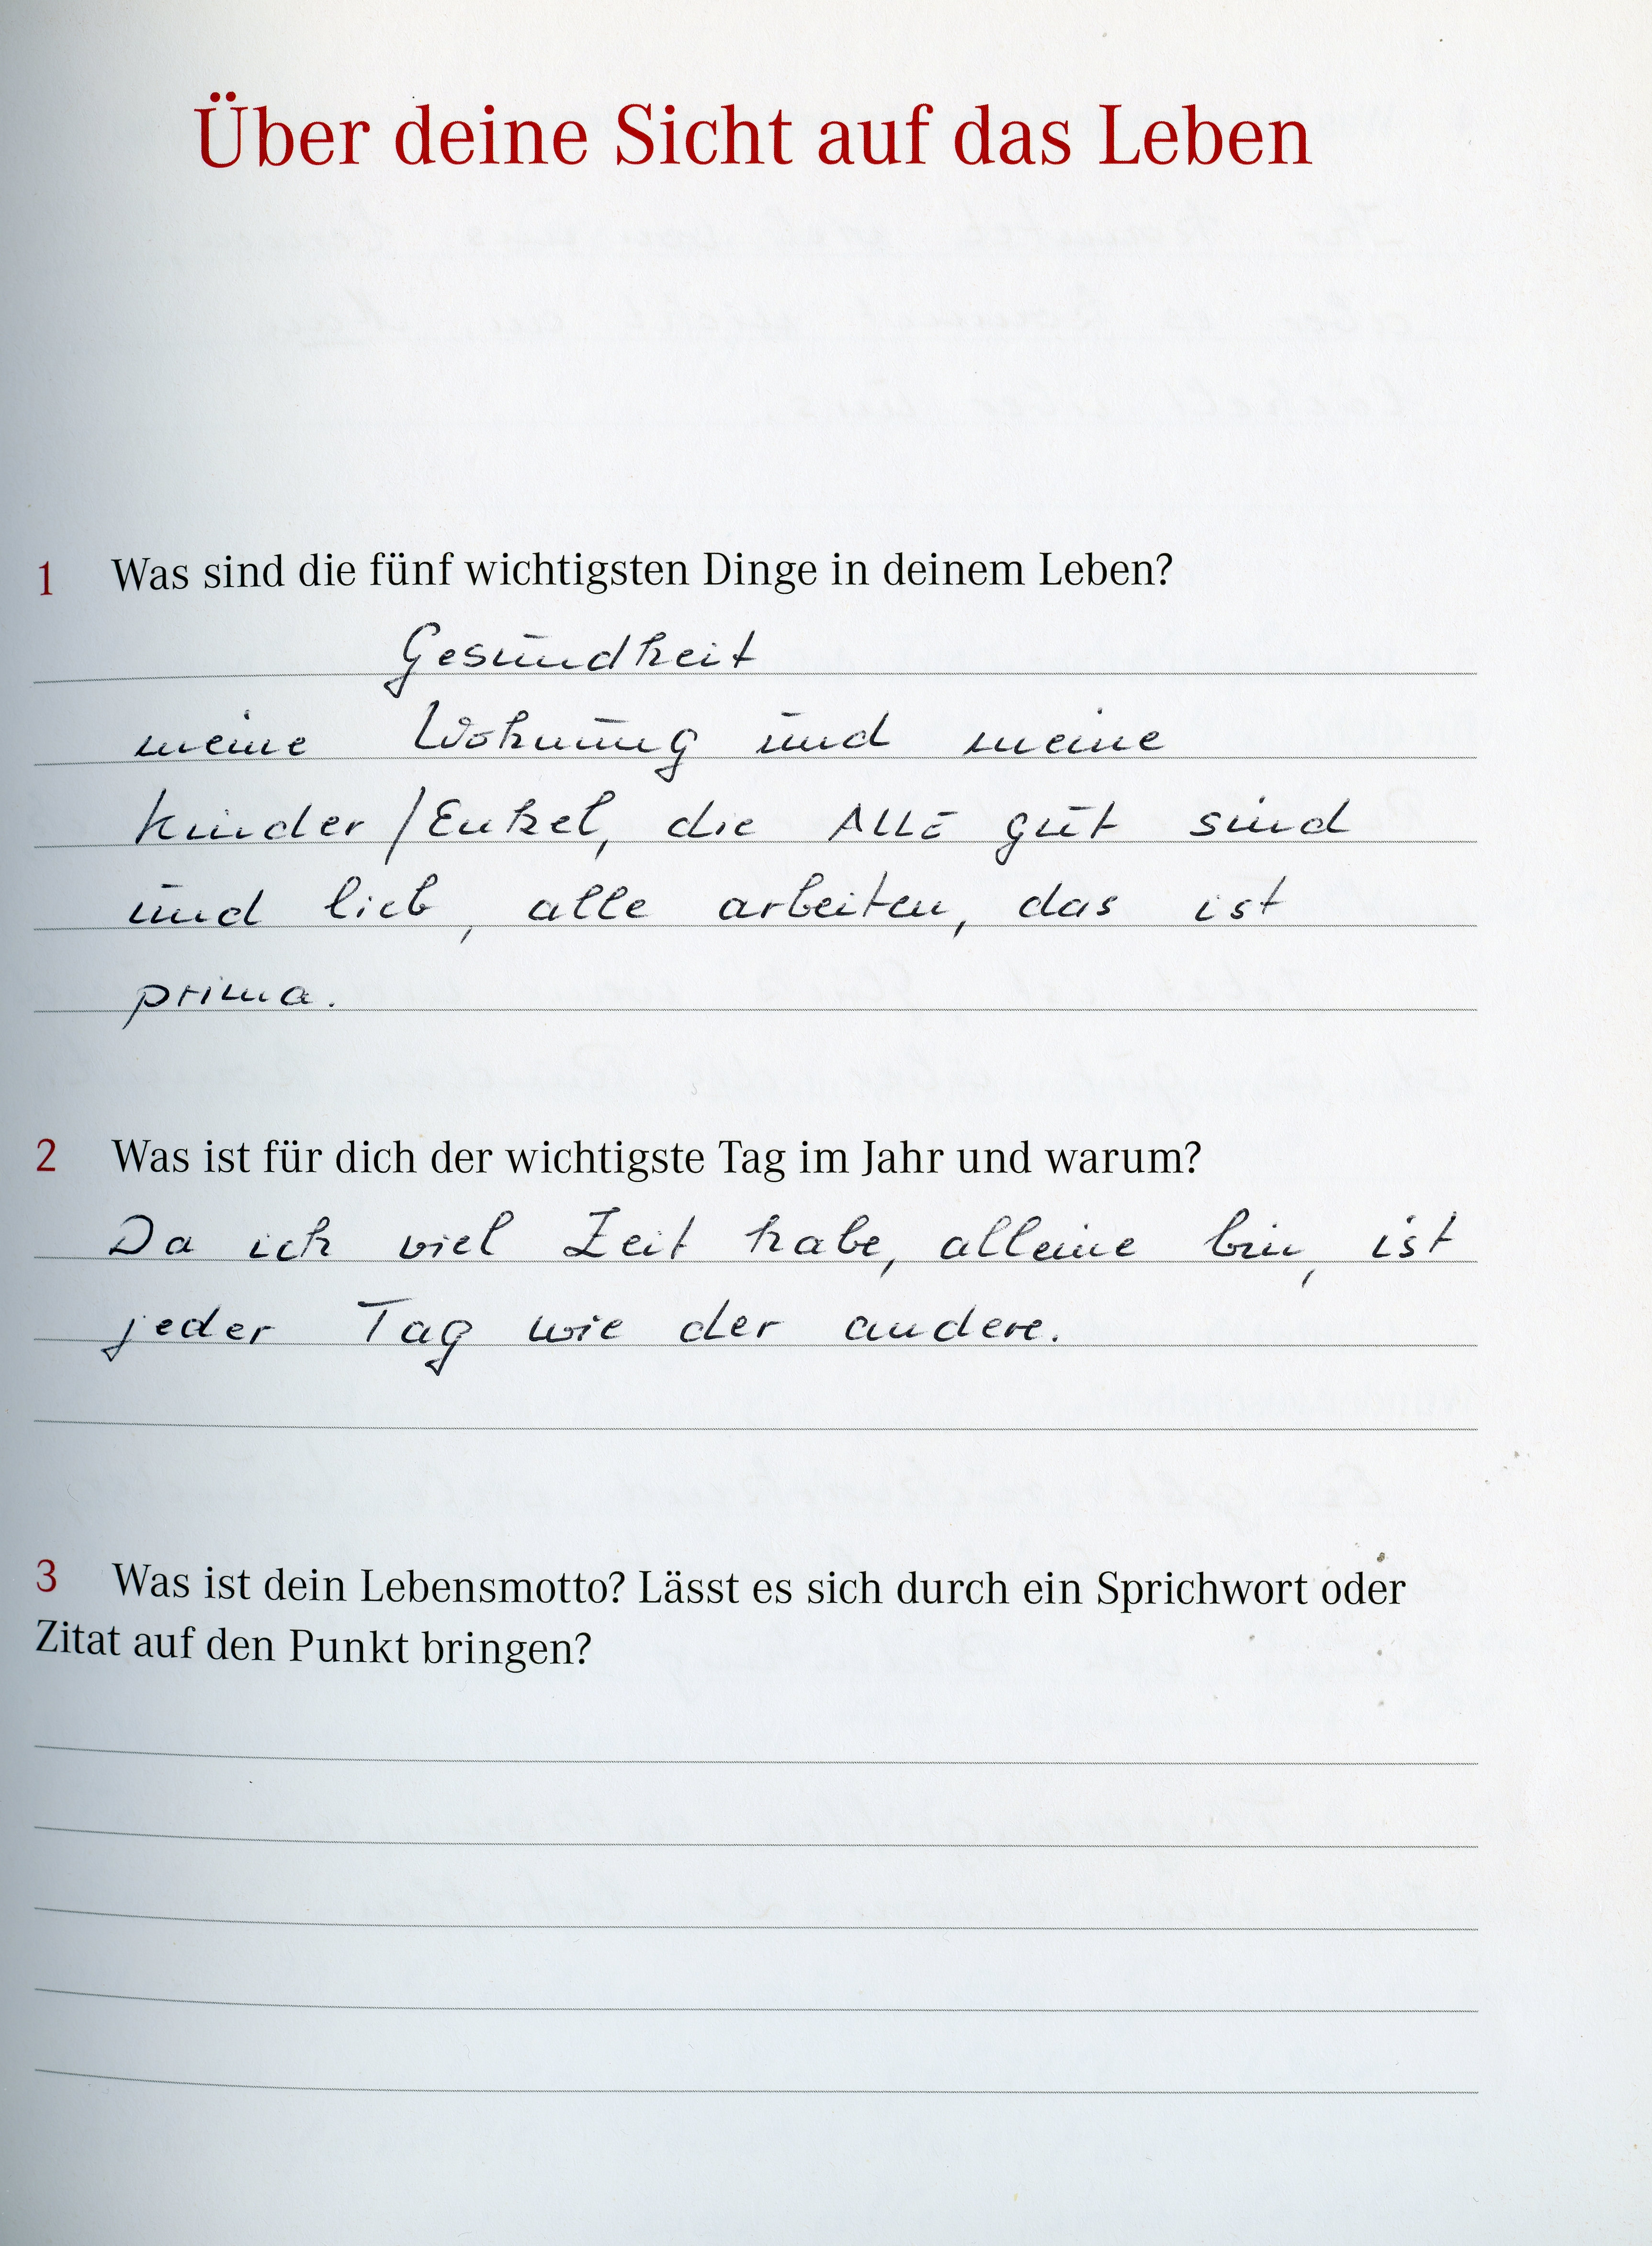 Über deine Sicht auf das Leben
1 Was sind die fünf wichtigsten Dinge in deinem Leben?
Gesundheit
meine Wohnung und meine
Kinder/Enkel, die ALLE gut sind
und lieb, alle arbeiten, das ist
prima.
2 Was ist für dich der wichtigste Tag im Jahr und warum?
Da ich viel Zeit habe, alleine bin, ist
jeder Tag wie der andere.
3 Was ist dein Lebensmotto? Lässt es sich durch ein Sprichwort oder
Zitat auf den Punkt bringen?